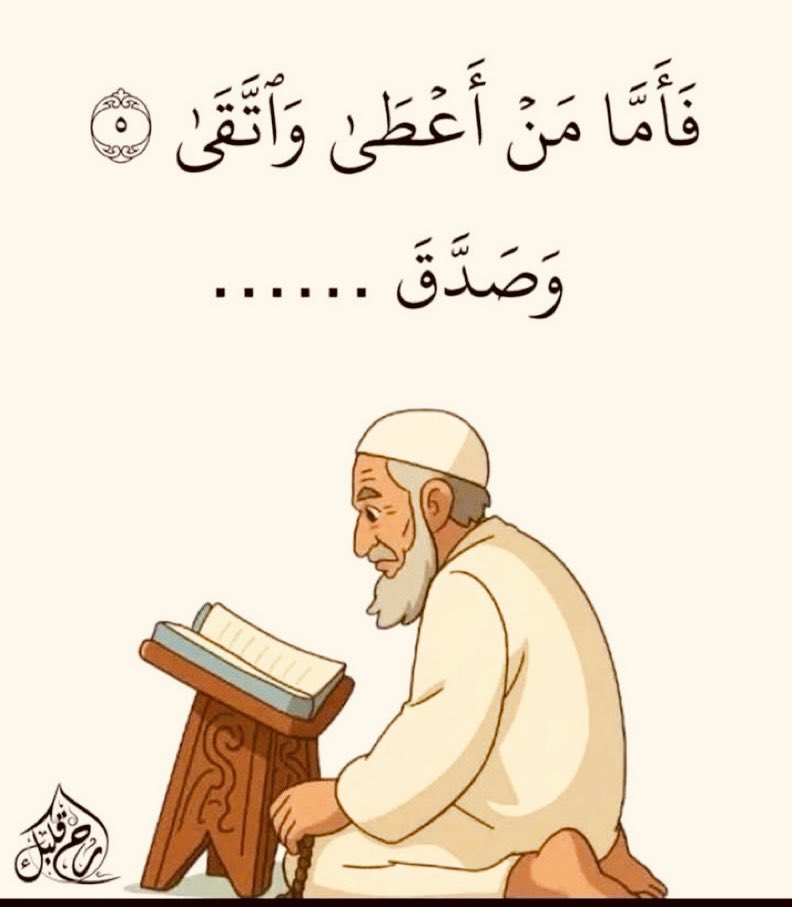 فَأَمَّا مَنۡ أَعۡطَىٰ وَٱتَّقَىٰ ٥
وَصَدَّقَ ......
ارح قلبك